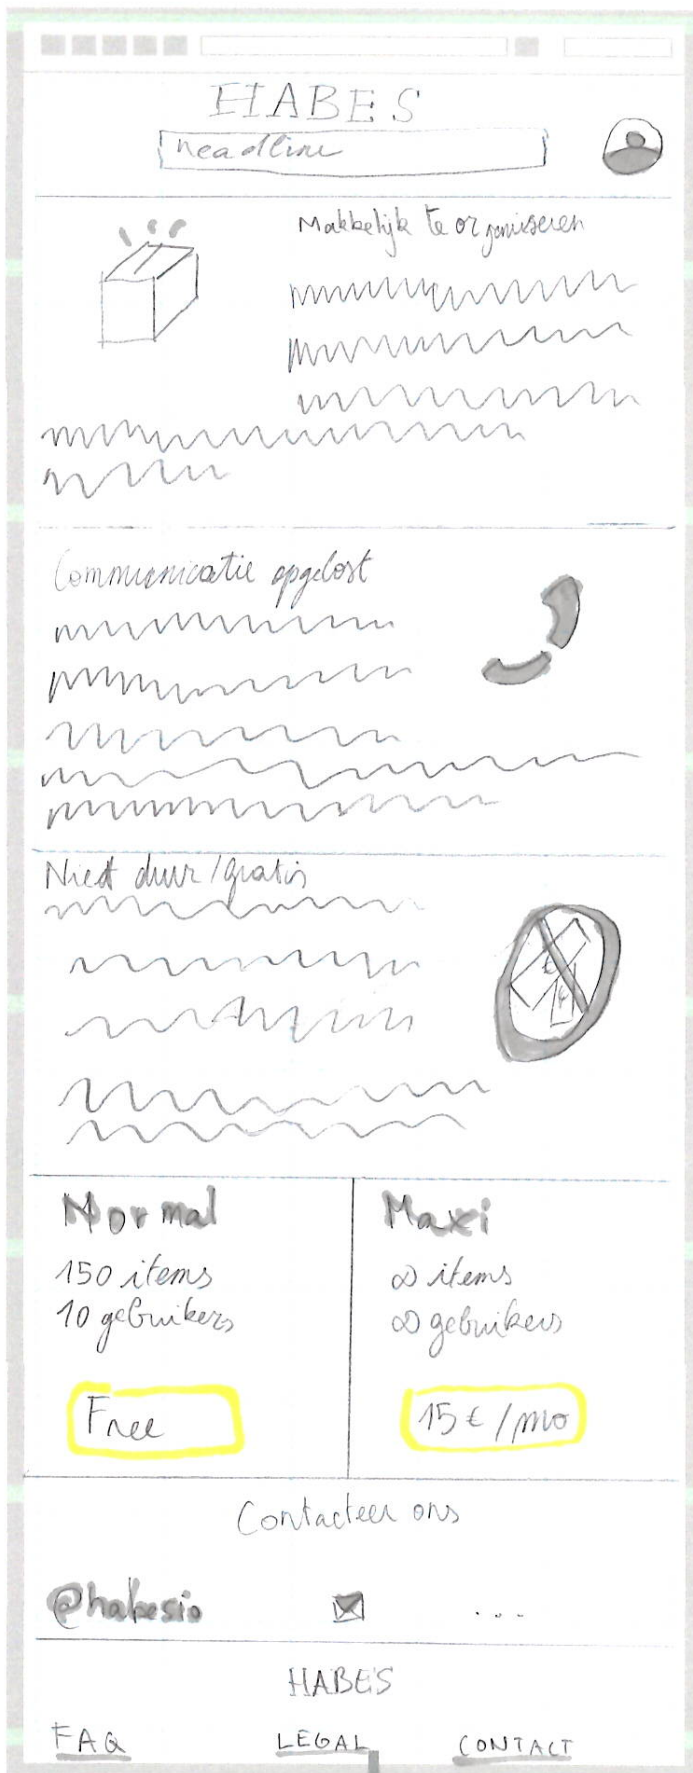 HABES
headline
Makkelijk te organiseren
Communicatie opgelost
Niet duur/gratis
Normal
Maxi
150 items
∞ items
10 gebruikers
∞ gebruikers
Free
15€/mo
Contacteer ons
@habesio
...
HABES
FAQ
LEGAL
CONTACT